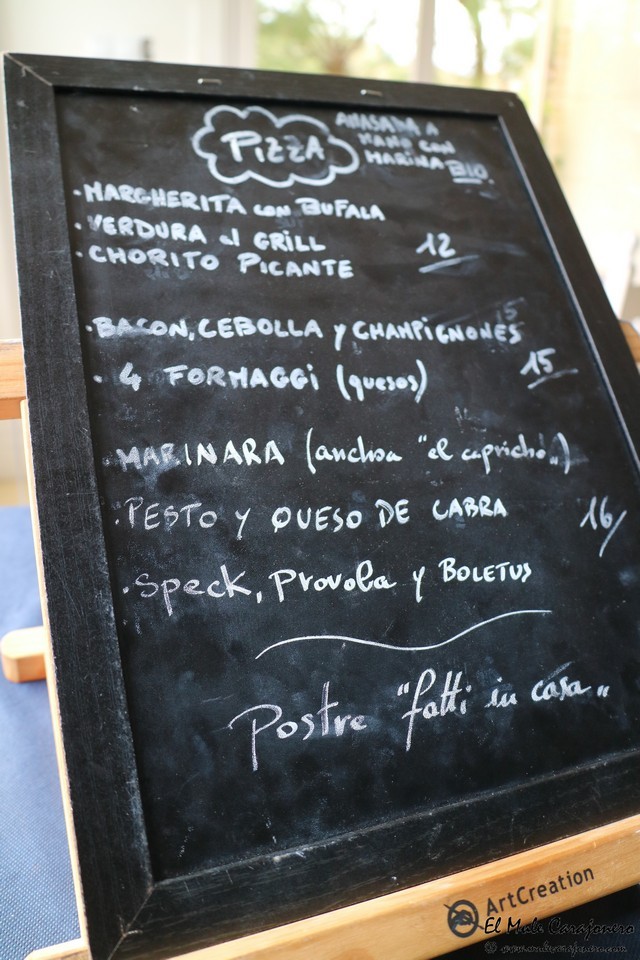 PIZZA
AMASADA A
MANO CON
HARINA BIO.
· MARGHERITA con BUFALA
· VERDURA al GRILL
12
· CHORITO PICANTE
· BACON, CEBOLLA y CHAMPIGNONES
15
· 4 FORMAGGi (quesos)
· MARINARA (anchoa "el capricho")
· PESTO Y QUESO DE CABRA
16
· Speck, Provola y BOLETUS
Postre "fatti in casa"
ArtCreation
El Mule Carajonero
© www.mulecarajonero.com